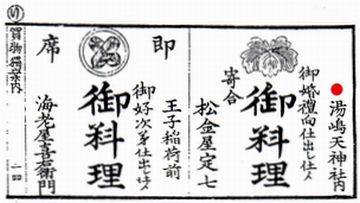 湯嶋天神社内
御婚禮向仕出し仕候
御料理
寄合
松金屋定七
即
席
王子稲荷前
御好次第仕出し仕候
御料理
海老屋喜右衛門
買物獨案内